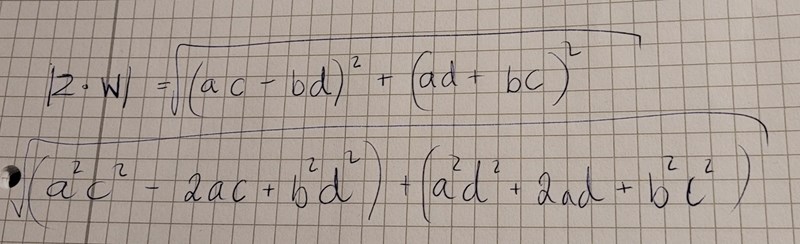 |z · w| = √((ac - bd)² + (ad + bc)²)
√((a²c² - 2ac + b²d²) + (a²d² + 2ad + b²c²))